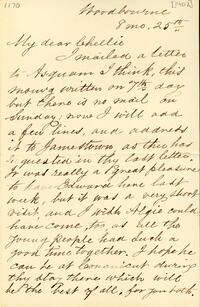 1170
[1902]
Woodbourne
8 mo. 25th
My dear Chellie
I mailed a letter
to Asquam I think, this
morn'g written on 7th day
but there is no mail on
Sunday; now I will add
a few lines, and address
it to Jamestown as thee has
requested in thy last letter.
It was really a great pleasure
to have Edward here last
week, but it was a very short
visit, and I wish Algie could
have come, too, as all the
young people had such a
good time together. I hope he
can be at Conanicut during
thy stay there which will
be the best of all, for you both.